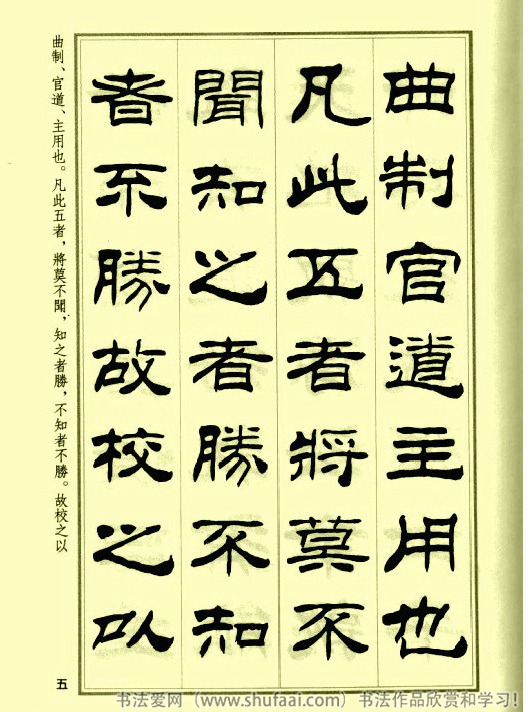 曲制官道主用也
凡此五者將莫不
聞知之者勝不知
者不勝故校之以
曲制、官道、主用也。凡此五者，將莫不聞，知之者勝，不知者不勝。故校之以
五
书法爱网（www.shufaai.com）书法作品欣赏和学习！